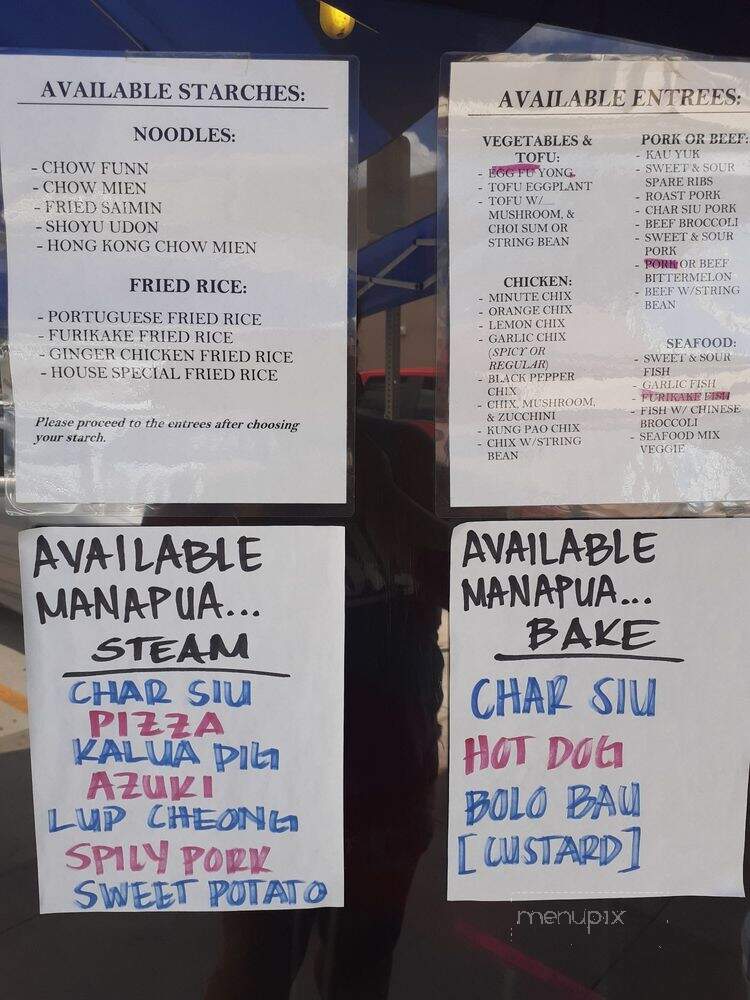 AVAILABLE STARCHES:
NOODLES:
- CHOW FUNN
- CHOW MIEN
- FRIED SAIMIN
- SHOYU UDON
- HONG KONG CHOW MIEN
FRIED RICE:
- PORTUGUESE FRIED RICE
- FURIKAKE FRIED RICE
- GINGER CHICKEN FRIED RICE
- HOUSE SPECIAL FRIED RICE
Please proceed to the entrees after choosing
your starch.
AVAILABLE ENTREES:
VEGETABLES &
TOFU:
- EGG FU YONG
- TOFU EGGPLANT
- TOFU W/
MUSHROOM, &
CHOI SUM OR
STRING BEAN
CHICKEN:
- MINUTE CHIX
- ORANGE CHIX
- LEMON CHIX
- GARLIC CHIX
(SPICY OR
REGULAR)
- BLACK PEPPER
CHIX
- CHIX, MUSHROOM,
& ZUCCHINI
- KUNG PAO CHIX
- CHIX W/STRING
BEAN
PORK OR BEEF:
- KAU YUK
- SWEET & SOUR
SPARE RIBS
- ROAST PORK
- CHAR SIU PORK
- BEEF BROCCOLI
- SWEET & SOUR
PORK
- PORK OR BEEF
BITTERMELON
- BEEF W/STRING
BEAN
SEAFOOD:
- SWEET & SOUR
FISH
- GARLIC FISH
- FURIKAKE FISH
- FISH W/ CHINESE
BROCCOLI
- SEAFOOD MIX
VEGGIE
AVAILABLE
MANAPUA...
STEAM
CHAR SIU
PIZZA
KALUA PIG
AZUKI
LUP CHEONG
SPICY PORK
SWEET POTATO
AVAILABLE
MANAPUA...
BAKE
CHAR SIU
HOT DOG
BOLO BAU
[CUSTARD]
menupix